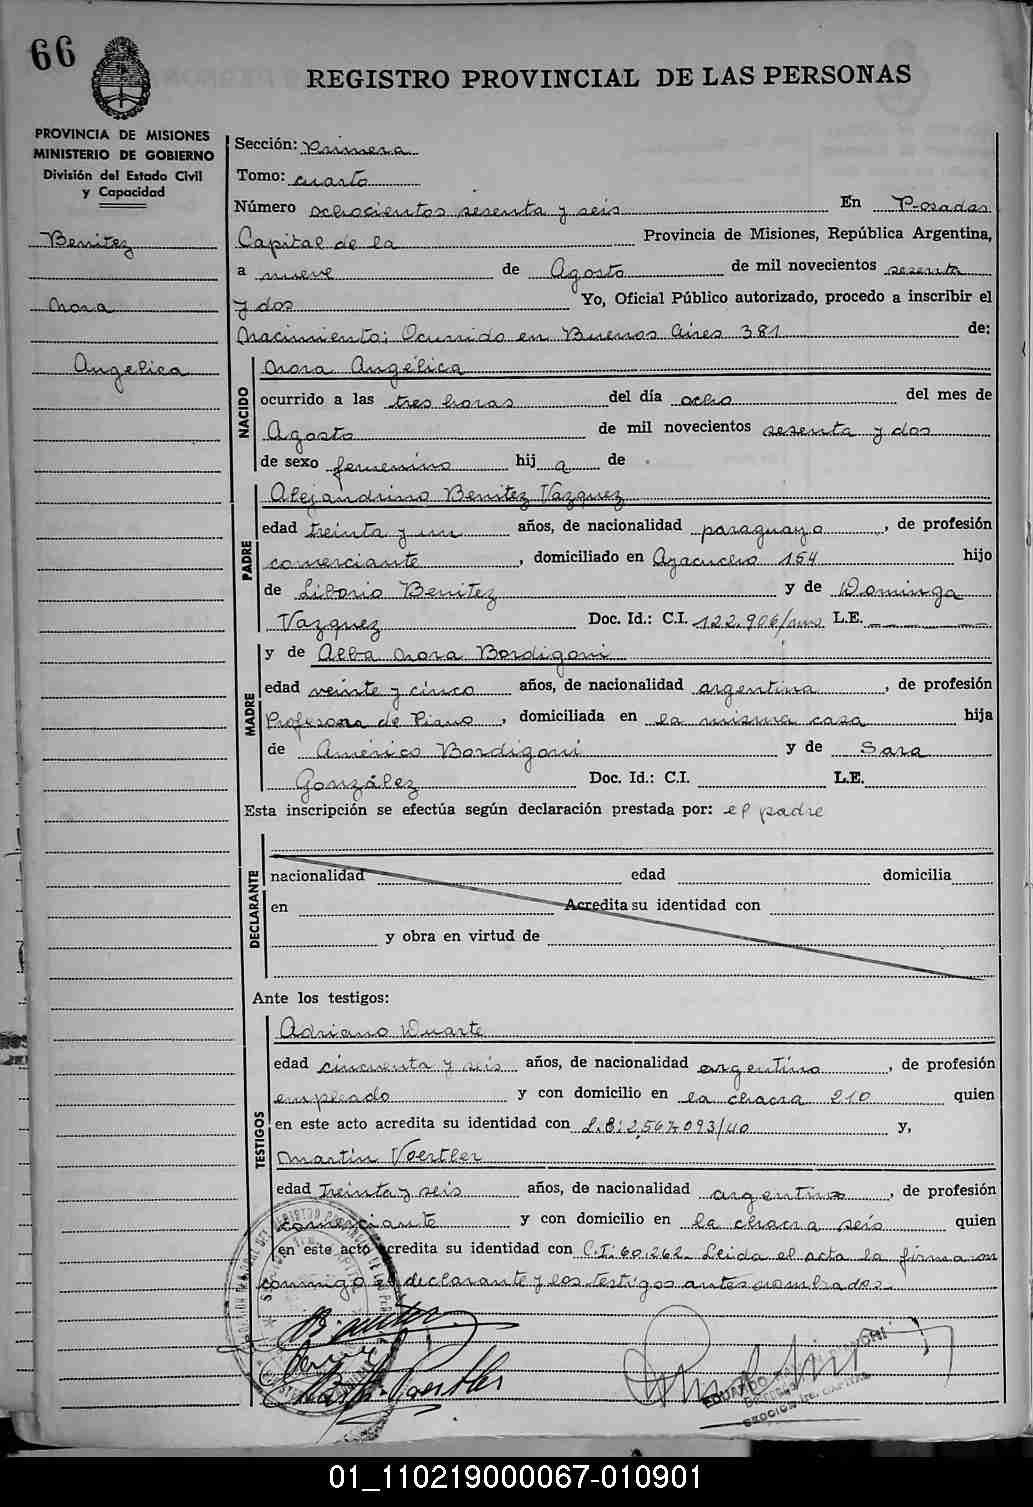 66
REGISTRO PROVINCIAL DE LAS PERSONAS
PROVINCIA DE MISIONES
MINISTERIO DE GOBIERNO
División del Estado Civil
y Capacidad
Benitez
Nora
Angelica
Sección: Primera
Tomo: cuarto
Número ochocientos sesenta y seis En Posadas
Capital de la Provincia de Misiones, República Argentina,
a nueve de Agosto de mil novecientos sesenta
y dos Yo, Oficial Público autorizado, procedo a inscribir el
Nacimiento; Ocurrido en Buenos Aires 381 de:
NACIDO
Nora Angélica
ocurrido a las tres horas del día ocho del mes de
Agosto de mil novecientos sesenta y dos
de sexo femenino hij a de
PADRE
Alejandrino Benitez Vazquez
edad treinta y un años, de nacionalidad paraguaya, de profesión
comerciante, domiciliado en Ayacucho 154 hijo
de Liborio Benitez y de Dominga
Vazquez Doc. Id.: C.I. 122.906/ L.E.
MADRE
y de Alba Nora Bordigoni
edad veinte y cinco años, de nacionalidad argentina, de profesión
Profesora de Piano, domiciliada en la misma casa hija
de Américo Bordigoni y de Sara
González Doc. Id.: C.I. L.E.
Esta inscripción se efectúa según declaración prestada por: el padre
DECLARANTE
nacionalidad edad domicilia
en Acredita su identidad con
y obra en virtud de
Ante los testigos:
TESTIGOS
Adriano Duarte
edad cincuenta y seis años, de nacionalidad argentino, de profesión
empleado y con domicilio en la chacra 210 quien
en este acto acredita su identidad con 2.567.093/40 y,
Martín Voertler
edad treinta y seis años, de nacionalidad argentino, de profesión
comerciante y con domicilio en la chacra seis quien
en este acto acredita su identidad con C.I: 60.262. Leida el acta la firmaron
conmigo el declarante y los testigos antes nombrados.
EDUARDO
SECCION CAPITAL
01_110219000067-010901